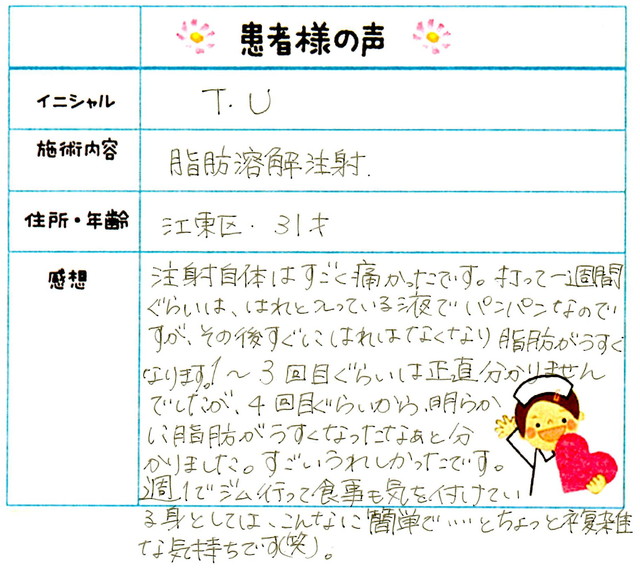 患者様の声
イニシャル T.U
施術内容 脂肪溶解注射.
住所・年齢 江東区・31才
感想
注射自体はすごく痛かったです。打って一週間
ぐらいは、はれと入っている液でパンパンなので
すが、その後すぐにはれはなくなり脂肪がうすく
なります。1〜3回目ぐらいは正直分かりません
でしたが、4回目ぐらいから、明らか
に脂肪がうすくなったなぁと分
かりました。すごいうれしかったです。
週1でジム行って食事も気を付けてい
る身としては、こんなに簡単で‥‥とちょっと複雑
な気持ちです(笑)。